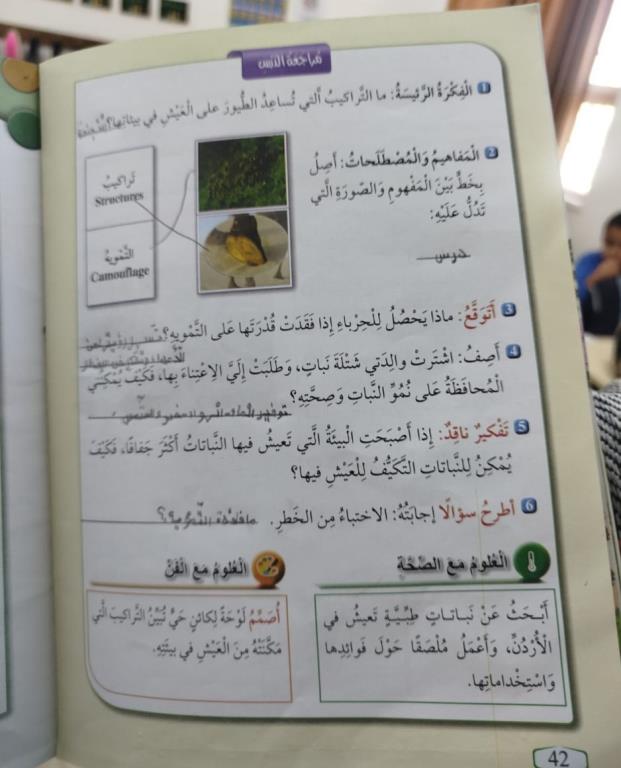 مُراجَعَةُ الدَّرْسِ
1 الْفِكْرَةُ الرَّئيسَةُ: ما التَّراكيبُ الَّتي تُساعِدُ الطُّيورَ على الْعَيْشِ في بيئاتِها؟ الأجنحة
2 الْمَفاهيمُ وَالْمُصْطَلَحاتُ: أَصِلُ
بِخَطٍّ بَيْنَ الْمَفْهومِ وَالصّورَةِ الَّتي
تَدُلُّ عَلَيْهِ:
تَراكيبُ
Structures
التَّمْويهُ
Camouflage
3 أَتَوَقَّعُ: ماذا يَحْصُلُ لِلْحِرْباءِ إِذا فَقَدَتْ قُدْرَتَها عَلى التَّمْويهِ؟
4 أَصِفُ: اشْتَرَتْ والِدَتي شَتْلَةَ نَباتٍ، وَطَلَبَتْ إِلَيَّ الِاعْتِناءَ بِها، فَكَيْفَ يُمْكِنُني
الْمُحافَظَةُ عَلى نُمُوِّ النَّباتِ وَصِحَّتِهِ؟
توفير الماء والهواء
5 تَفْكيرٌ ناقِدٌ: إِذا أَصْبَحَتِ الْبيئَةُ الَّتي تَعيشُ فيها النَّباتاتُ أَكْثَرَ جَفافًا، فَكَيْفَ
يُمْكِنُ لِلنَّباتاتِ التَّكَيُّفُ لِلْعَيْشِ فيها؟
6 أَطْرَحُ سُؤالًا إِجابَتُهُ: الاختباءُ مِنَ الخَطَرِ. ما فائدة التمويه؟
الْعُلومُ مَعَ الصِّحَّةِ
أَبْحَثُ عَنْ نَباتاتٍ طِبِّيَّةٍ تَعيشُ في
الْأُرْدُنِّ، وَأَعْمَلُ مُلْصَقًا حَوْلَ فَوائِدِها
وَاسْتِخْداماتِها.
الْعُلومُ مَعَ الْفَنِّ
أُصَمِّمُ لَوْحَةً لِكائِنٍ حَيٍّ تُبَيِّنُ التَّراكيبَ الَّتي
مَكَّنَتْهُ مِنَ الْعَيْشِ في بيئَتِهِ.
42